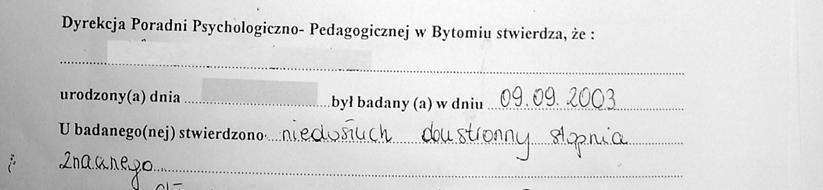 Dyrekcja Poradni Psychologiczno- Pedagogicznej w Bytomiu stwierdza, że :
urodzony(a) dnia był badany (a) w dniu 09.09.2003
U badanego(nej) stwierdzono niedosłuch obustronny stopnia
znacznego